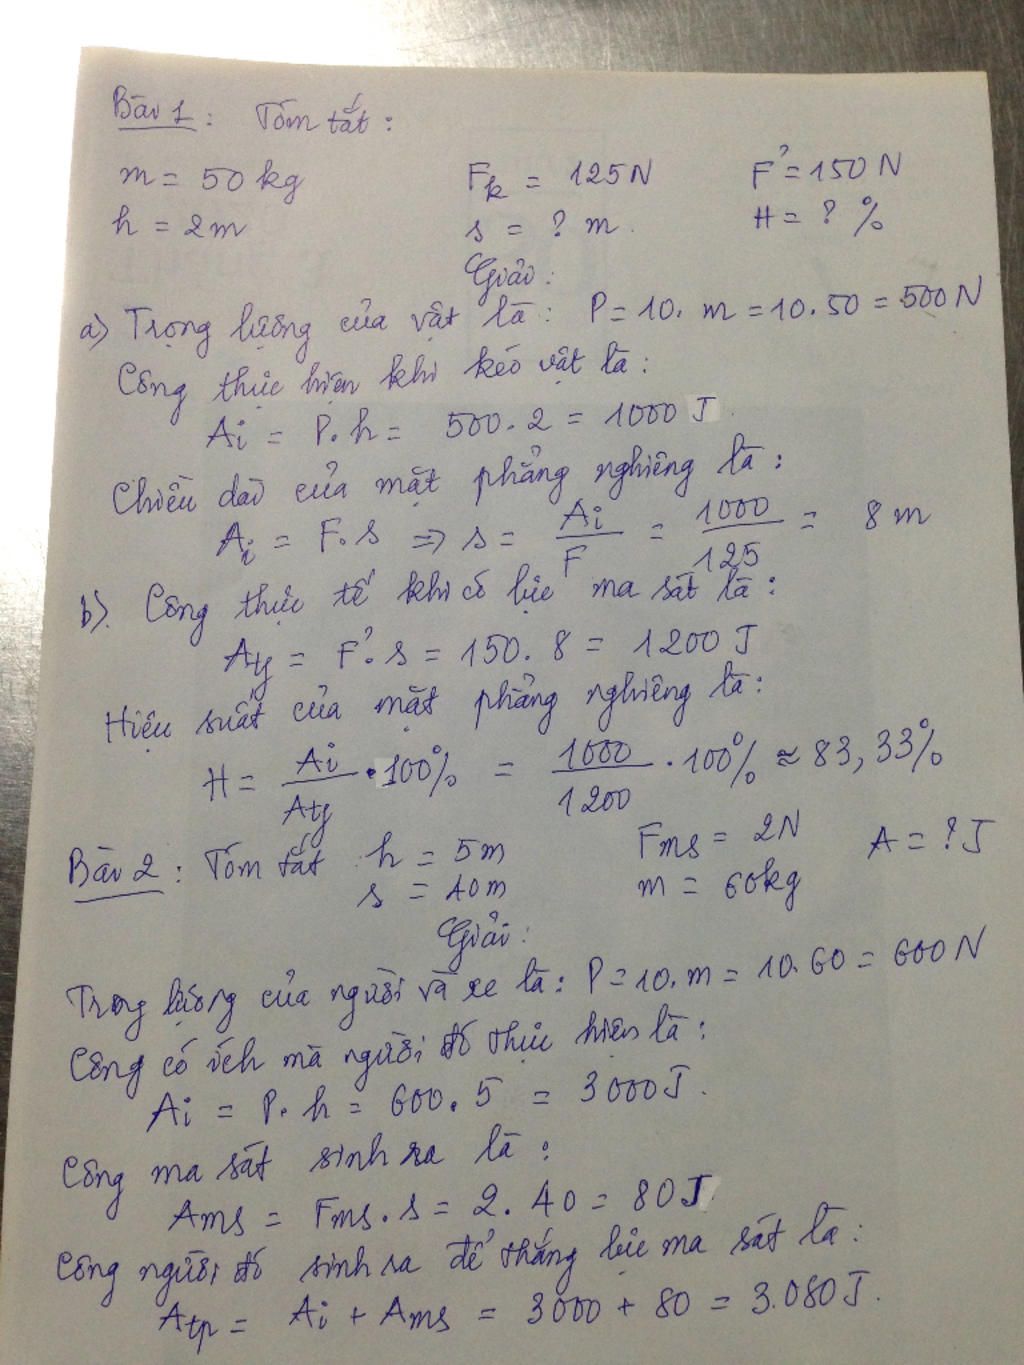 Bài 1 : Tóm tắt :
m = 50 kg Fk = 125 N F' = 150 N
h = 2 m s = ? m. H = ? %
Giải :
a) Trọng lượng của vật là : P = 10. m = 10. 50 = 500 N
Công thực hiện khi kéo vật là :
Ai = P. h = 500. 2 = 1000 J.
Chiều dài của mặt phẳng nghiêng là :
Ai = F. s => s = Ai / F = 1000 / 125 = 8 m
b). Công thực tế khi có lực ma sát là :
Atp = F'. s = 150. 8 = 1200 J
Hiệu suất của mặt phẳng nghiêng là :
H = Ai / Atp . 100% = 1000 / 1200 . 100% ≈ 83,33%
Bài 2 : Tóm tắt : h = 5m Fms = 2N A = ? J
s = 40m m = 60kg
Giải :
Trọng lượng của người và xe là : P = 10. m = 10. 60 = 600 N
Công có ích mà người đó thực hiện là :
Ai = P. h = 600. 5 = 3000 J.
Công ma sát sinh ra là :
Ams = Fms. s = 2. 40 = 80 J
Công người đó sinh ra để thắng lực ma sát là :
Atp = Ai + Ams = 3000 + 80 = 3.080 J.